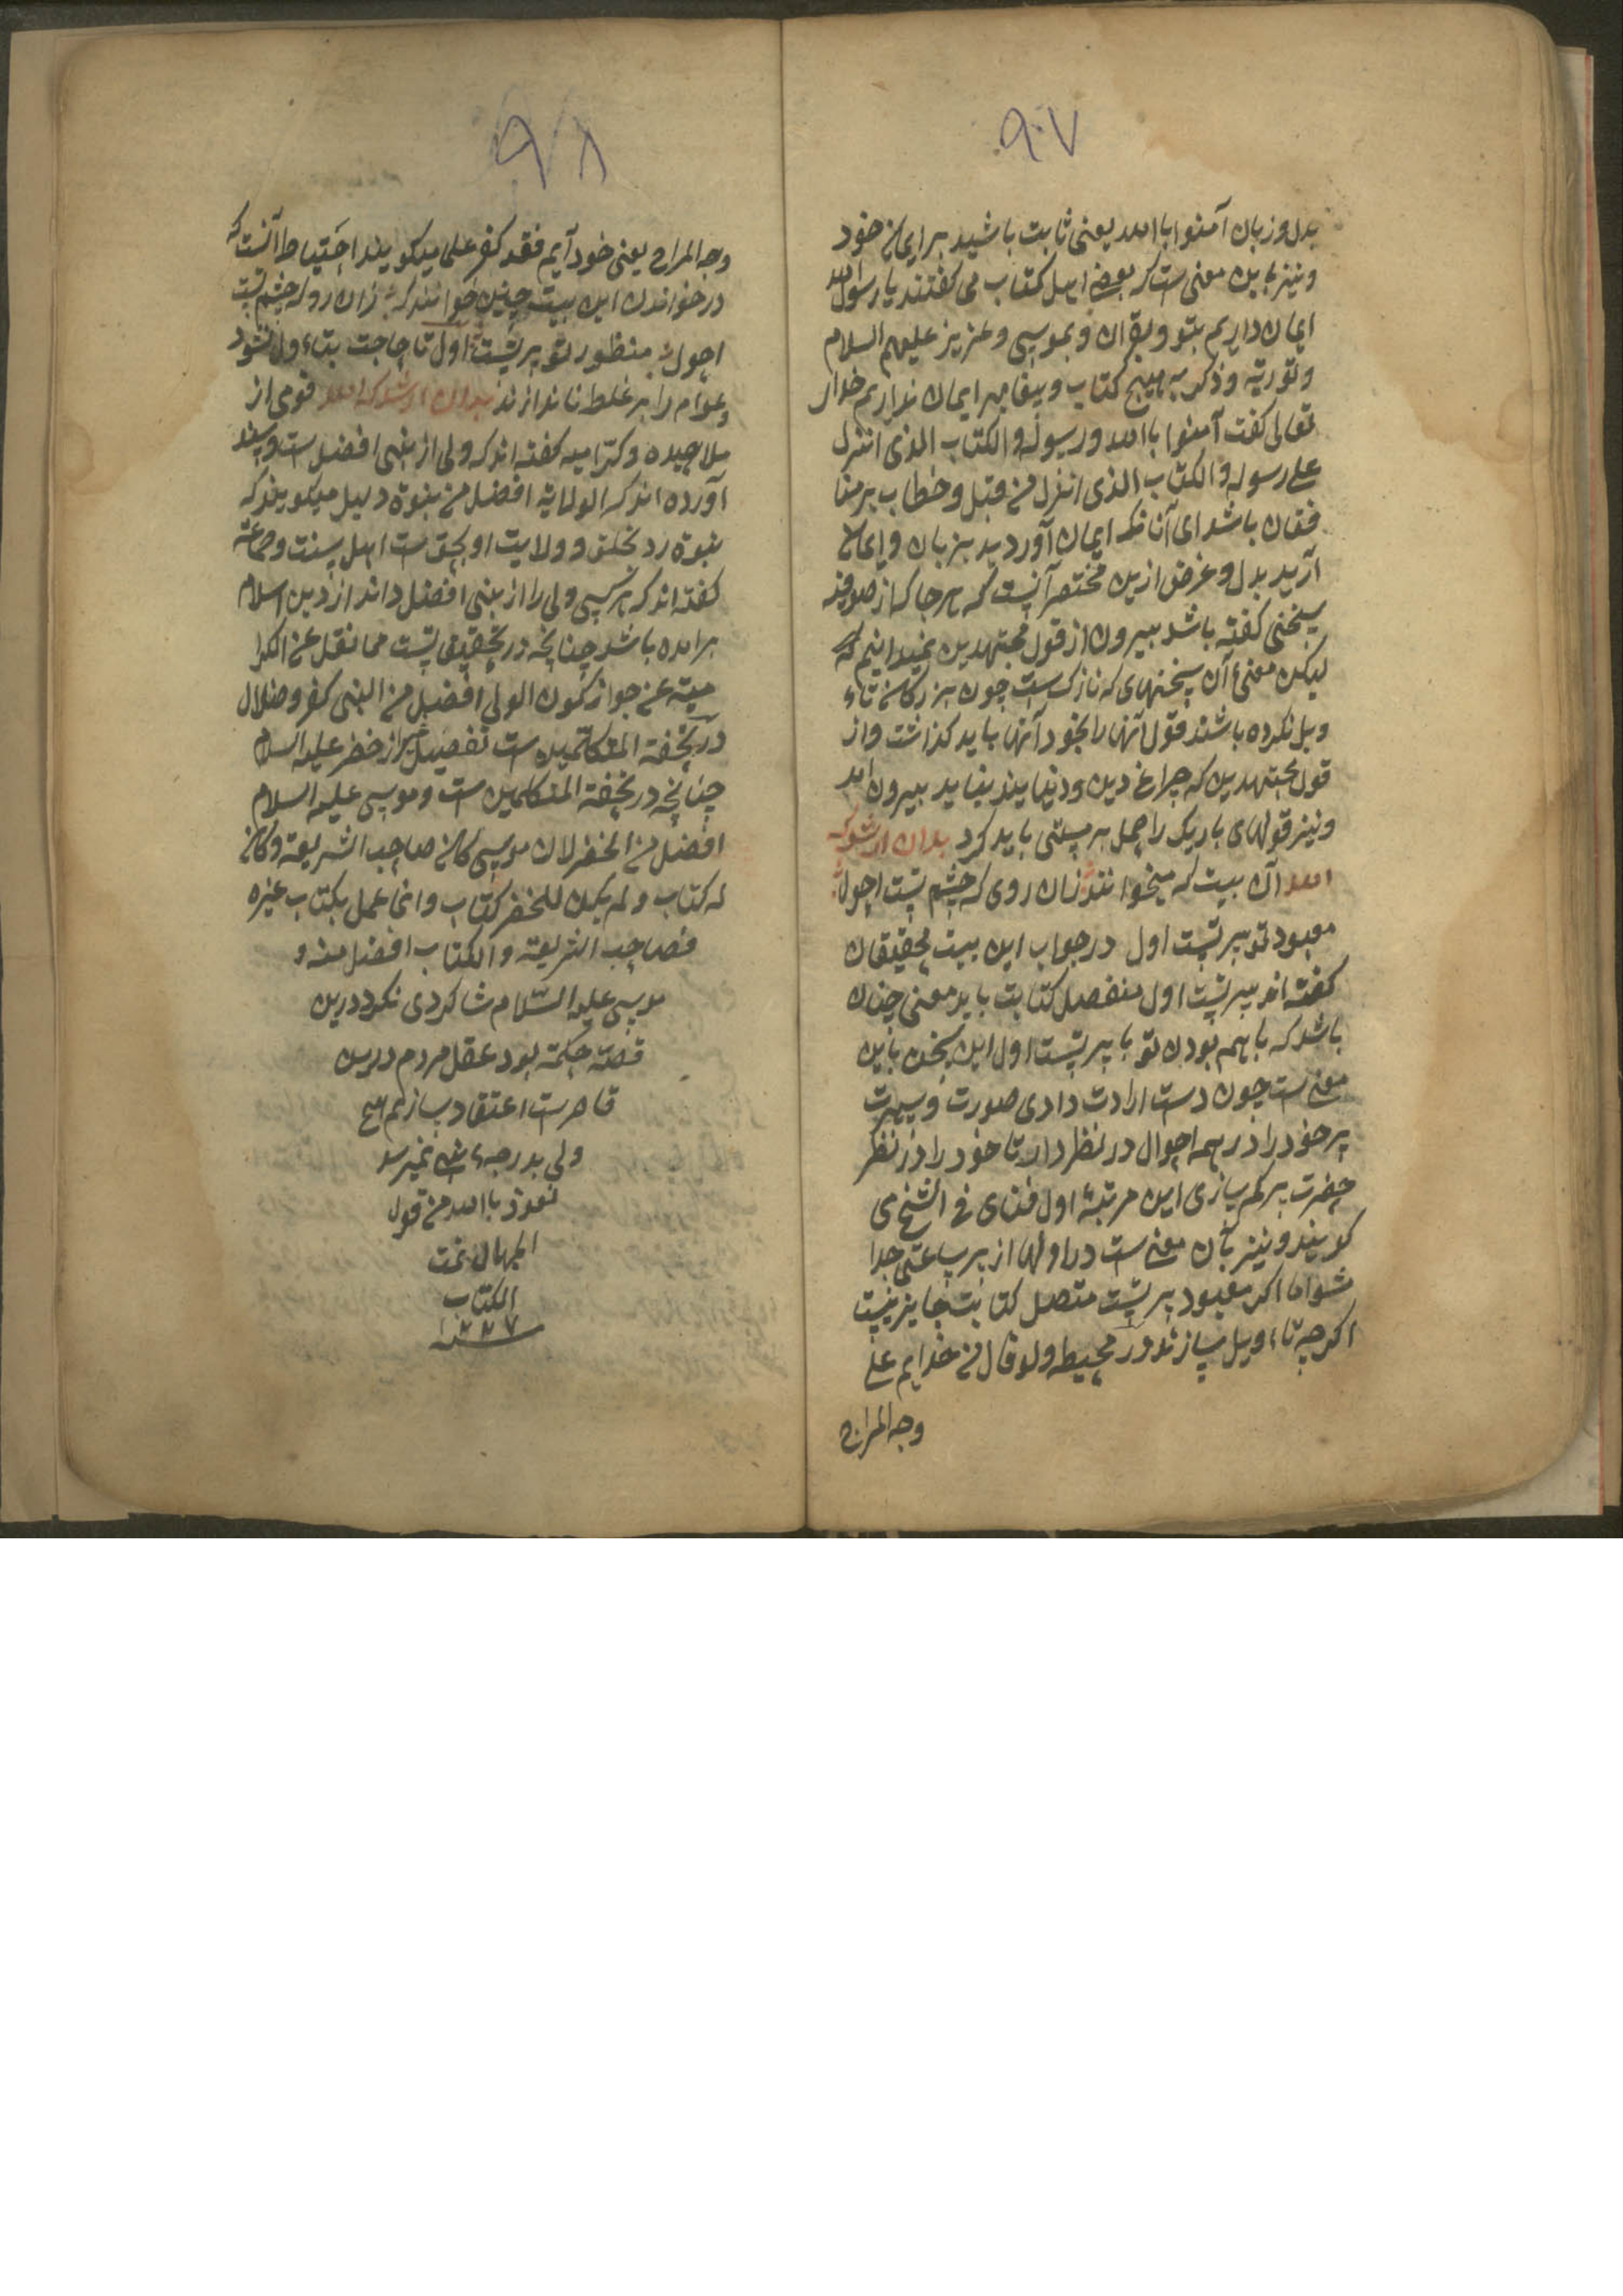 ۹۷
بدل و زبان آمنوا باالله یعنی ثابت باشید بر ایمان خود
ونیز باین معنی ست که بعضی اهل کتاب می کفتند یا رسول الله
ایمان داریم بتو وبقران وبموسی وعزیز علیهم السلام
وتوریة وذکر به هیج کتاب وپیغامبر ایمان نداریم خدای
تعالی کفت آمنوا باالله ورسوله والکتاب الذی انزل
علی رسوله والکتاب الذی انزل من قبل وخطاب بر منا
فقان باشد ای آنانکه ایمان آوردید بزبان وایمان
آرید بدل وغرض ازین مختصر آنست که هرجا که از صوفیه
سخنی کفته باشد بیرون از قول مجتهدین نمیدانیم که
لیکن معنی آن سخنهای که نازک ست چون بزرکان تاء
ویل نکرده باشند قول آنها را بخود آنها باید کذاشت واز
قول مجتهدین که چراغ دین ودنیا یند نباید بیرون امد
ونیز قولهای باریک را حمل بر مستی باید کرد بدان ارشدکه
الله آن بیت که میخوانند زان روی که چشم تست احول
معبود تو پیر تست اول در جواب این بیت محققان
کفته اند پیر تست اول منفصل کتابت باید معنی چنان
باشد که باهم بودن تو با پیر تست اول این سخن باین
معنی ست چون دست ارادت دادی صورت وسیرت
پیر خود را در همه احوال در نظر دار تا خود را در نظر
حضرت پیر کم سازی این مرتبه اول فنای فی الشیخ می
کویند ونیز بآن معنی ست در اولها از پیر ساعتی جدا
مشو اما اکر معبود پیر تست متصل کتابت جایز نیست
اکرچه تاءویل سازند در محیط ولو قال من خدایم علی
وجه المزاح
۹۸
وجه المزاح یعنی خود آیم فقد کفر علی میکویند احتیاط آنست که
در خواندن این بیت چنین خوانند که زان رو که چشم تست
احول منظور تو پیر تست اول تا حاجت بتاءول نشود
وعوام را بر غلط نا ندازند بدان ارشدکه الله قومی از
ملاحیده وکرامیه کفته اند که ولی از نبی افضل ست وسند
آورده اند که الولایة افضل من نبوة دلیل میکویند که
نبوة رد بخلق وولایت او بحق ست اهل سنت وجماعة
کفته اند که هر کسی ولی را از نبی افضل داند از دین اسلام
برامده باشد چنانچه در تحقیق تست مما نقل عن الکرا
میة عن جواز کون الولی افضل من النبی کفر وضلال
در تحفة المتکلمین ست تفصیل از خضر علیه السلام
چنانچه در تحفة المتکلمین ست وموسی علیه السلام
افضل من الخضر لان موسی کان صاحب الشریعة وکان
له کتاب ولم یکن للخضر کتاب وانما عمل بکتاب غیره
فصاحب الشریعة والکتاب افضل منه و
موسی علیه السلام شاکردی نکرد درین
قصه حکمة بود عقل مردم درین
قاصر ست اعتقاد سازیم هیچ
ولی بدرجه نبی نمیرسد
نعوذ باالله من قول
الجهال تمت
الکتاب